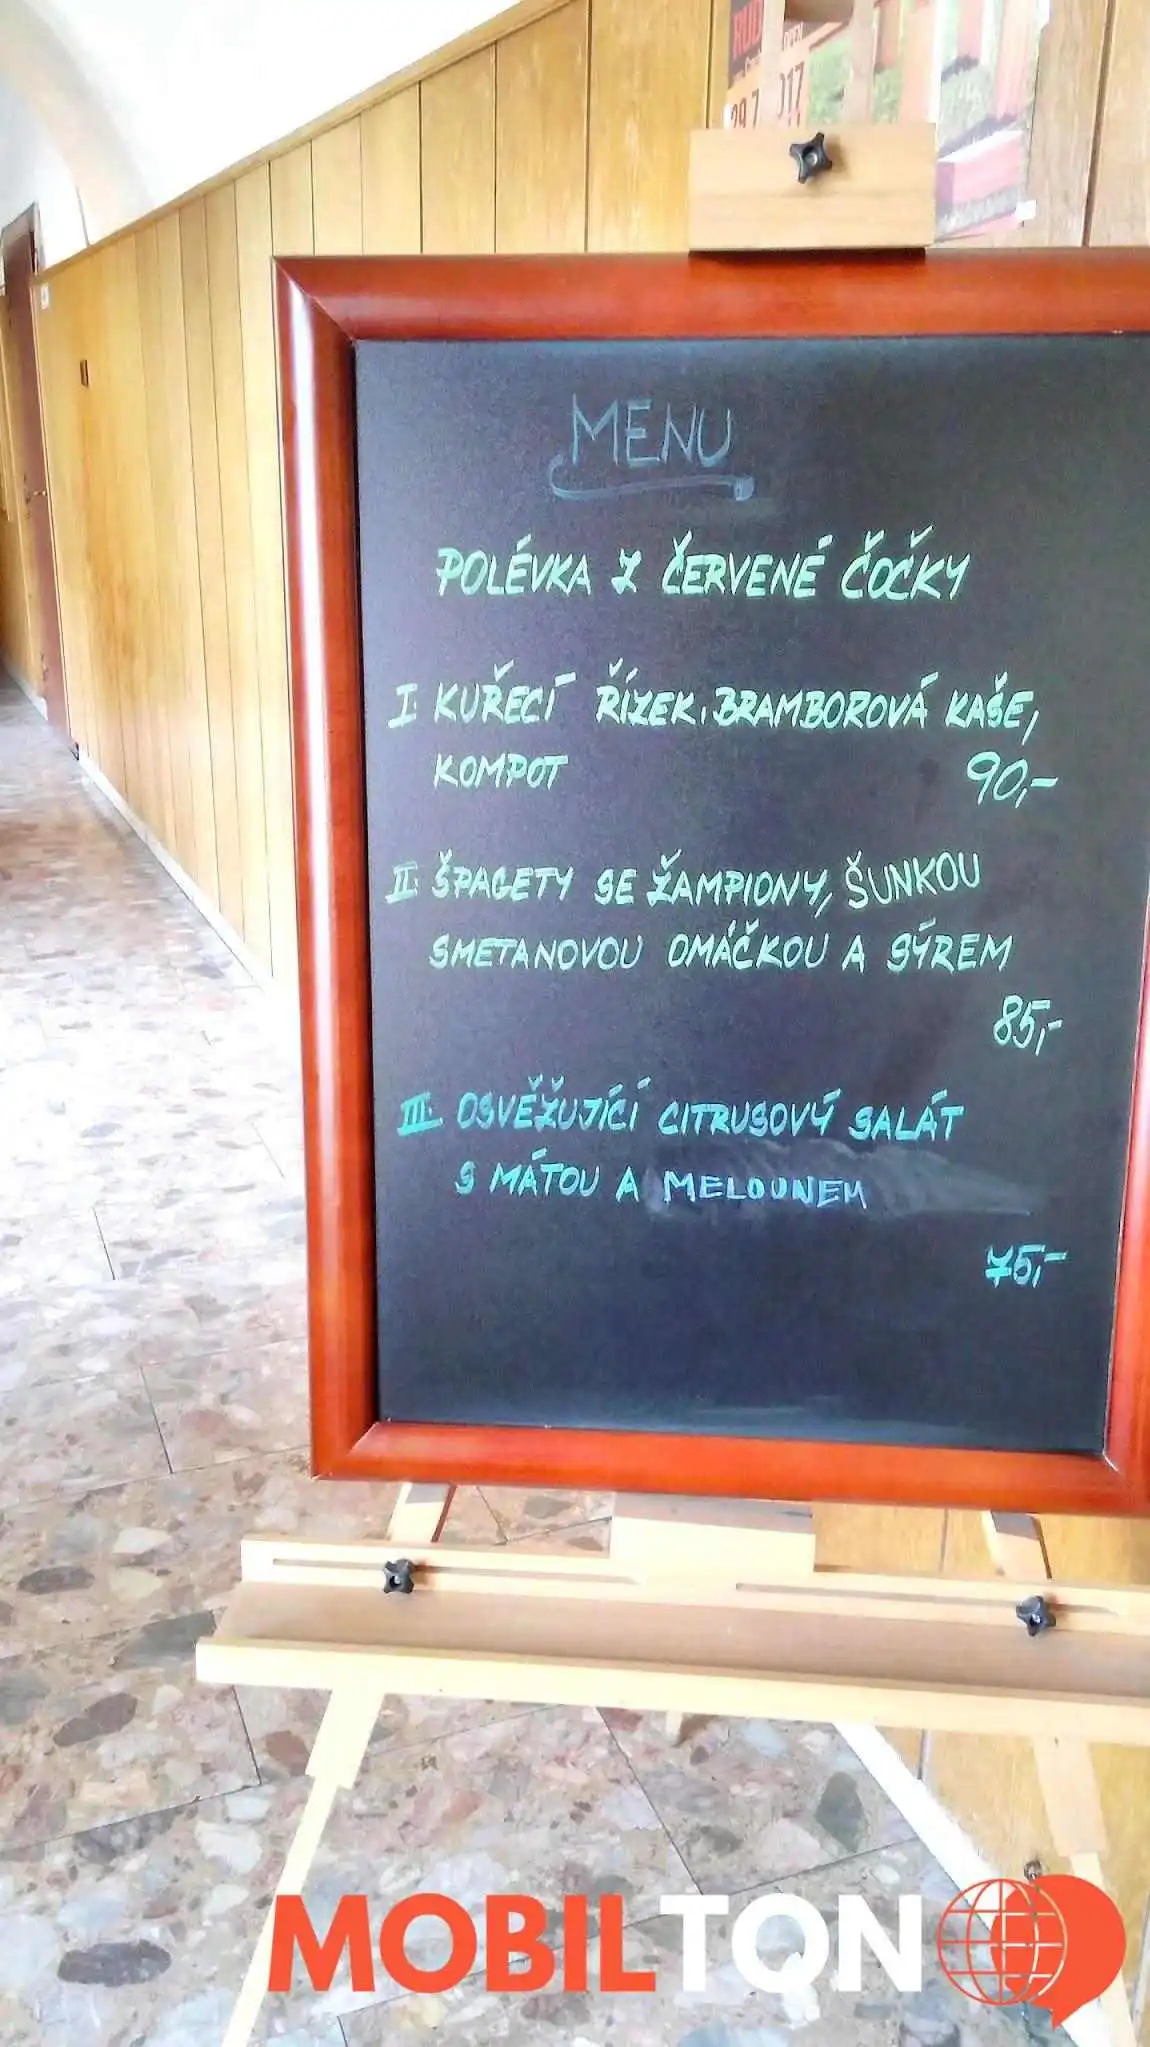 RUD
29.7
017
MENU
POLÉVKA Z ČERVENÉ ČOČKY
I. KUŘECÍ ŘÍZEK, BRAMBOROVÁ KAŠE,
KOMPOT 90,-
II. ŠPAGETY SE ŽAMPIONY, ŠUNKOU
SMETANOVOU OMÁČKOU A SÝREM
85,-
III. OSVĚŽUJÍCÍ CITRUSOVÝ SALÁT
S MÁTOU A MELOUNEM
75,-
MOBILTON